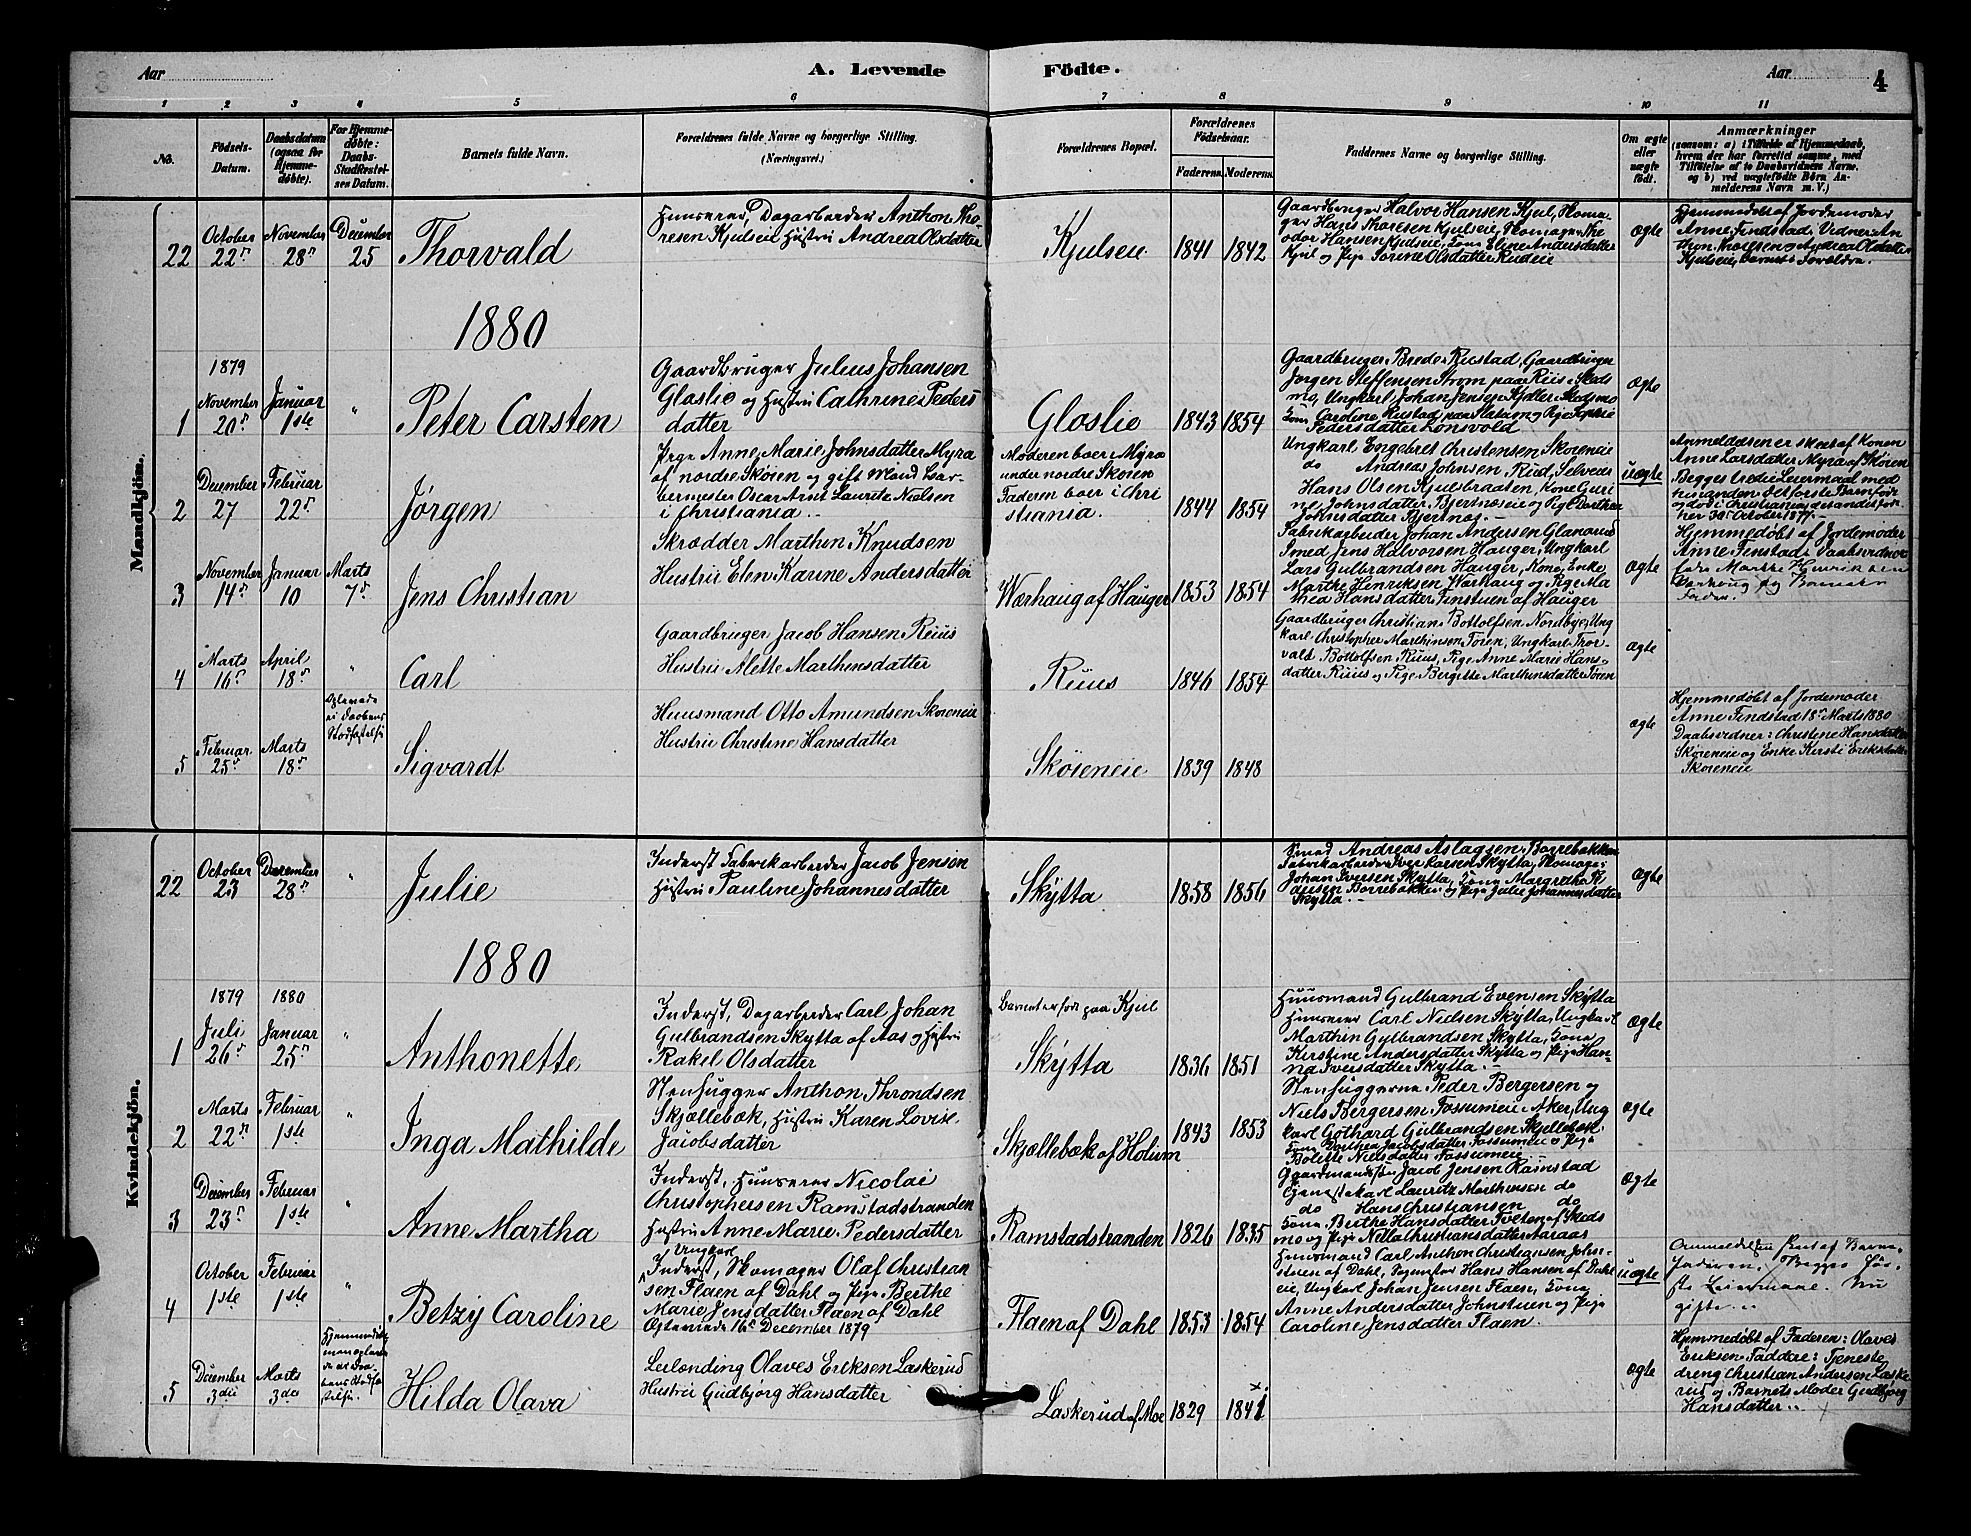 Aar
A. Levende Födte.
Aar 4
1 2 3 4 5 6 7 8 9 10 11
No.
Födsels-
Datum.
Daabsdatum
(ogsaa for
Hjemme-
döbte).
For Hjemme-
döbte:
Daabs-
Stadfæstel-
ses Datum.
Barnets fulde Navn.
Forældrenes fulde Navne og borgerlige Stilling.
(Næringsvei.)
Forældrenes Bopæl.
Forældrenes
Födselsaar.
Faderens. Moderens.
Faddernes Navne og borgerlige Stilling.
Om ægte
eller
uægte
födt.
Anmærkninger
(saasom: a) i Tilfælde af Hjemmedaab,
hvem der har forrettet samme, med
Tilföielse af to Daabsvidners Navne,
og b) ved uægtefödte Börn An-
melderens Navn m. V.)
Mandkjön.
22
October
22
November
28
December
25
Thorvald
Huuseier, Dagarbeider Anthon Tho-
resen Kjulseie Hustru Andrea Olsdatter
Kjulseie 1841 1842
Gaardbruger Halvor Hansen Kjul, Skoma-
ger Hans Thoresen Kjulseie, Skomager The
odor Hansen Kjulseie, Kone Eline Andersdatter
Kjul og Pige Torine Olsdatter Rudeie
ægte
Hjemmedøbt af Jordemoder
Anne Finstad, Vidner: An
thon Thoresen og Andrea Olsdatter
Kjulseie, Barnets Forældre.
1880
1
1879
November
20
Januar
1ste
"
Peter Carsten
Gaardbruger Julius Johansen
Gloslie og Hustru Cathrine Peders
datter
Gloslie 1843 1854
Gaardbruger Brede Rustad, Gaardbruger
Jørgen Steffensen Strøm paa Riis i Skeds
mo, Ungkarl Johan Jensen Kjeller Skedsmo
Kone Caroline Rustad paa Flatum og Pige Sophie
Pedersdatter Lønsvold
ægte
2
December
27
Februar
22
Jørgen
Pige Anne Marie Johnsdatter Myra
af nordre Skøien og gift Mand Bar-
bermester Oscar Arnt Lauritz Nielsen
i Christiania.
Moderen boer Myra
under nordre Skøien
Faderen boer i Chri
stiania. 1844 1854
Ungkarl Engebret Christensen Skøieneie
do Andreas Johnsen, Rud, Selveier
Hans Olsen Kjulsbraaten, Kone Guri
ne Johnsdatter Bjertnæseie og Pige Dorthea
Johnsdatter Bjertnæs.
uægte
Anmeldelsen er skeet af Konen
Anne Larsdatter Myra af Skøien
Begges tredie Leiermaal med
hinanden. Det første Barn født
og død i Christiania, det andet født
her 30 October 1877.
3
November
14
Januar
10
Marts
7
Jens Christian
Skrædder Marthin Knudsen
Hustru Elen Karine Andersdatter
Wærhaug af Hauger 1853 1854
Fabrikarbeider Johan Andersen Glanorud
Smed Jens Halvorsen Hauger, Ungkarl
Lars Gulbrandsen Hauger, Kone, Enke
Marthe Henriksen Wærhaug og Pige Ma
thea Hansdatter Finstuen af Hauger
ægte
Hjemmedøbt af Jordemoder
Anne Finstad, Daabsvidner
fare Marthe Henriksen
Værhoug og Barnets
Fader.
4
Marts
16
April
18
"
Carl
Gaardbruger Jacob Hansen Ruus
Hustru Alette Marthinsdatter
Ruus 1846 1854
Gaardbruger Christian Bottolfsen Nordbye, Ung
karl Christopher Marthinsen Tøien, Ungkarl Thor-
vald Bottolfsen Ruus, Pige Anne Marie Hans-
datter Ruus og Pige Bergitte Marthinsdatter Tøien
ægte
5
Februar
25
Marts
18
Oplevede
ei Daabens
Stadfæstelse
Sigvardt
Huusmand Otto Amundsen Skøieneie
Hustru Christine Hansdatter
Skøieneie 1839 1848
ægte
Hjemmedøbt af Jordemoder
Anne Finstad 18 Marts 1880
Daabsvidner: Christine Hansdatter
Skøieneie og Enke Kirsti Eriksdatter
Skøieneie
Kvindekjön.
22
October
23
December
28
"
Julie
Inderst Fabrikarbeider Jacob Jenson
Hustru Pauline Johannesdatter
Skÿtta 1858 1856
Smed Andreas Aslagsen, Borrebakken
Fabrikarbeider Iver Larsen Skÿtta, Skomager
Johan Iversen Skÿtta, Kone Margrethe
Borrebakken og Pige Julie Johannesdatter
Skÿtta.
ægte
1880
1
1879
Juli
26
1880
Januar
25
"
Anthonette
Inderst, Dagarbeider Carl Johan
Gulbrandsen Skÿtta af Aas og Hustru
Rakel Olsdatter
Barnet er født paa Kjul
Skÿtta 1836 1851
Huusmand Gulbrand Evensen Skÿtta
Huuseier Carl Nielsen Skÿtta, Ungkarl
Marthin Gulbrandsen Skÿtta, Kone
Kirstine Andersdatter Skÿtta og Pige Han-
na Iversdatter Skÿtta.
ægte
2
Marts
22
Februar
1ste
"
Inga Mathilde
Stenhugger Anthon Throndsen
Skjællebæk, Hustru Karen Lovise
Jacobsdatter
Skjællebæk af Holum 1843 1853
Stenhuggerne Peder Bergersen og
Niels Bergersen Fossumeie i Aker, Ung
karl Gothard Gulbrandsen Skjellebæk
Kone Dorthea Jacobsdatter Fossumeie og Pige
Bolette Nielsdatter Fossumeie
ægte
3
December
23
Februar
1ste
"
Anne Martha
Inderst, Huuseier Nicolai
Christophersen Ramstadstranden
Hustru Anne Marie Pedersdatter
Ramstadstranden 1826 1835
Gaardmandssøn Jacob Jensen Ramstad
Tjenestekarl Lauritz Marthinsen do
do Hans Christiansen do
Kone Birthe Hansdatter Tveter af Skeds
mo og Pige Nella Christiansdatter Aaraas
ægte
4
October
1ste
Februar
1ste
"
Betzÿ Caroline
Ungkarl
Inderst, Skomager Olaf Christian
sen Flaen af Dahl og Pige Berthe
Marie Jensdatter Flaen af Dahl
Ægteviede 16 December 1879
Flaen af Dahl 1853 1854
Huusmand Carl Anthon Christiansen John-
stuen af Dahl, Hans Hansen af Dahl
eie, Ungkarl Johan Jensen Flaen, Kone
Anne Andersdatter Johnstuen og Pige
Caroline Jensdatter Flaen.
uægte
Anmeldelsen skeet af Barne-
faderen. Begges før-
ste Leiermaal. Nu
gifte.
5
December
3die
Marts
3die
Hilda Olava
Leilænding Olaves Eriksen Laskerud
Hustru Gudbjørg Hansdatter
Laskerud af Moe 1829 1841
ægte
Hjemmedøbt af Faderen: Olaves
Eriksen. Faddere: Tjeneste
dreng Christian Andersen Laske
rud og Barnets Moder Gudbjørg
Hansdatter.